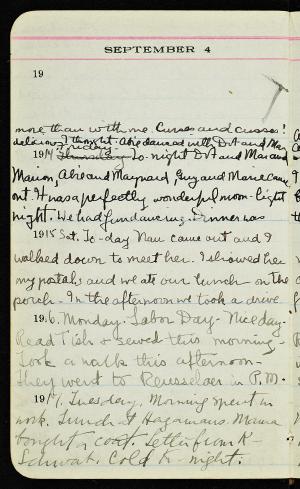 SEPTEMBER 4
19
more than with me. Curses and curses!
delicious I thought. Abie danced with Dot and May
Friday.
1914 Thursday To-night Dot and Max and
Marion, Abie and Maynard, Guy and Marie came
out. It was a perfectly wonderful moon-light
night. We had fun dancing. Dinner was
1915 Sat. To-day Nan came out and I
walked down to meet her. I showed her
my postals and we ate our lunch on the
porch. In the afternoon we took a drive.
1916. Monday. Labor Day. Nice day.
Read Tish & sewed this morning.
Took a walk this afternoon.
They went to Rensselaer in P.M.
1917. Tuesday. Morning spent in
work. Lunch at Hagamans. Mama
bought a coat. Letter from K-
Schwab. Cold K- night.